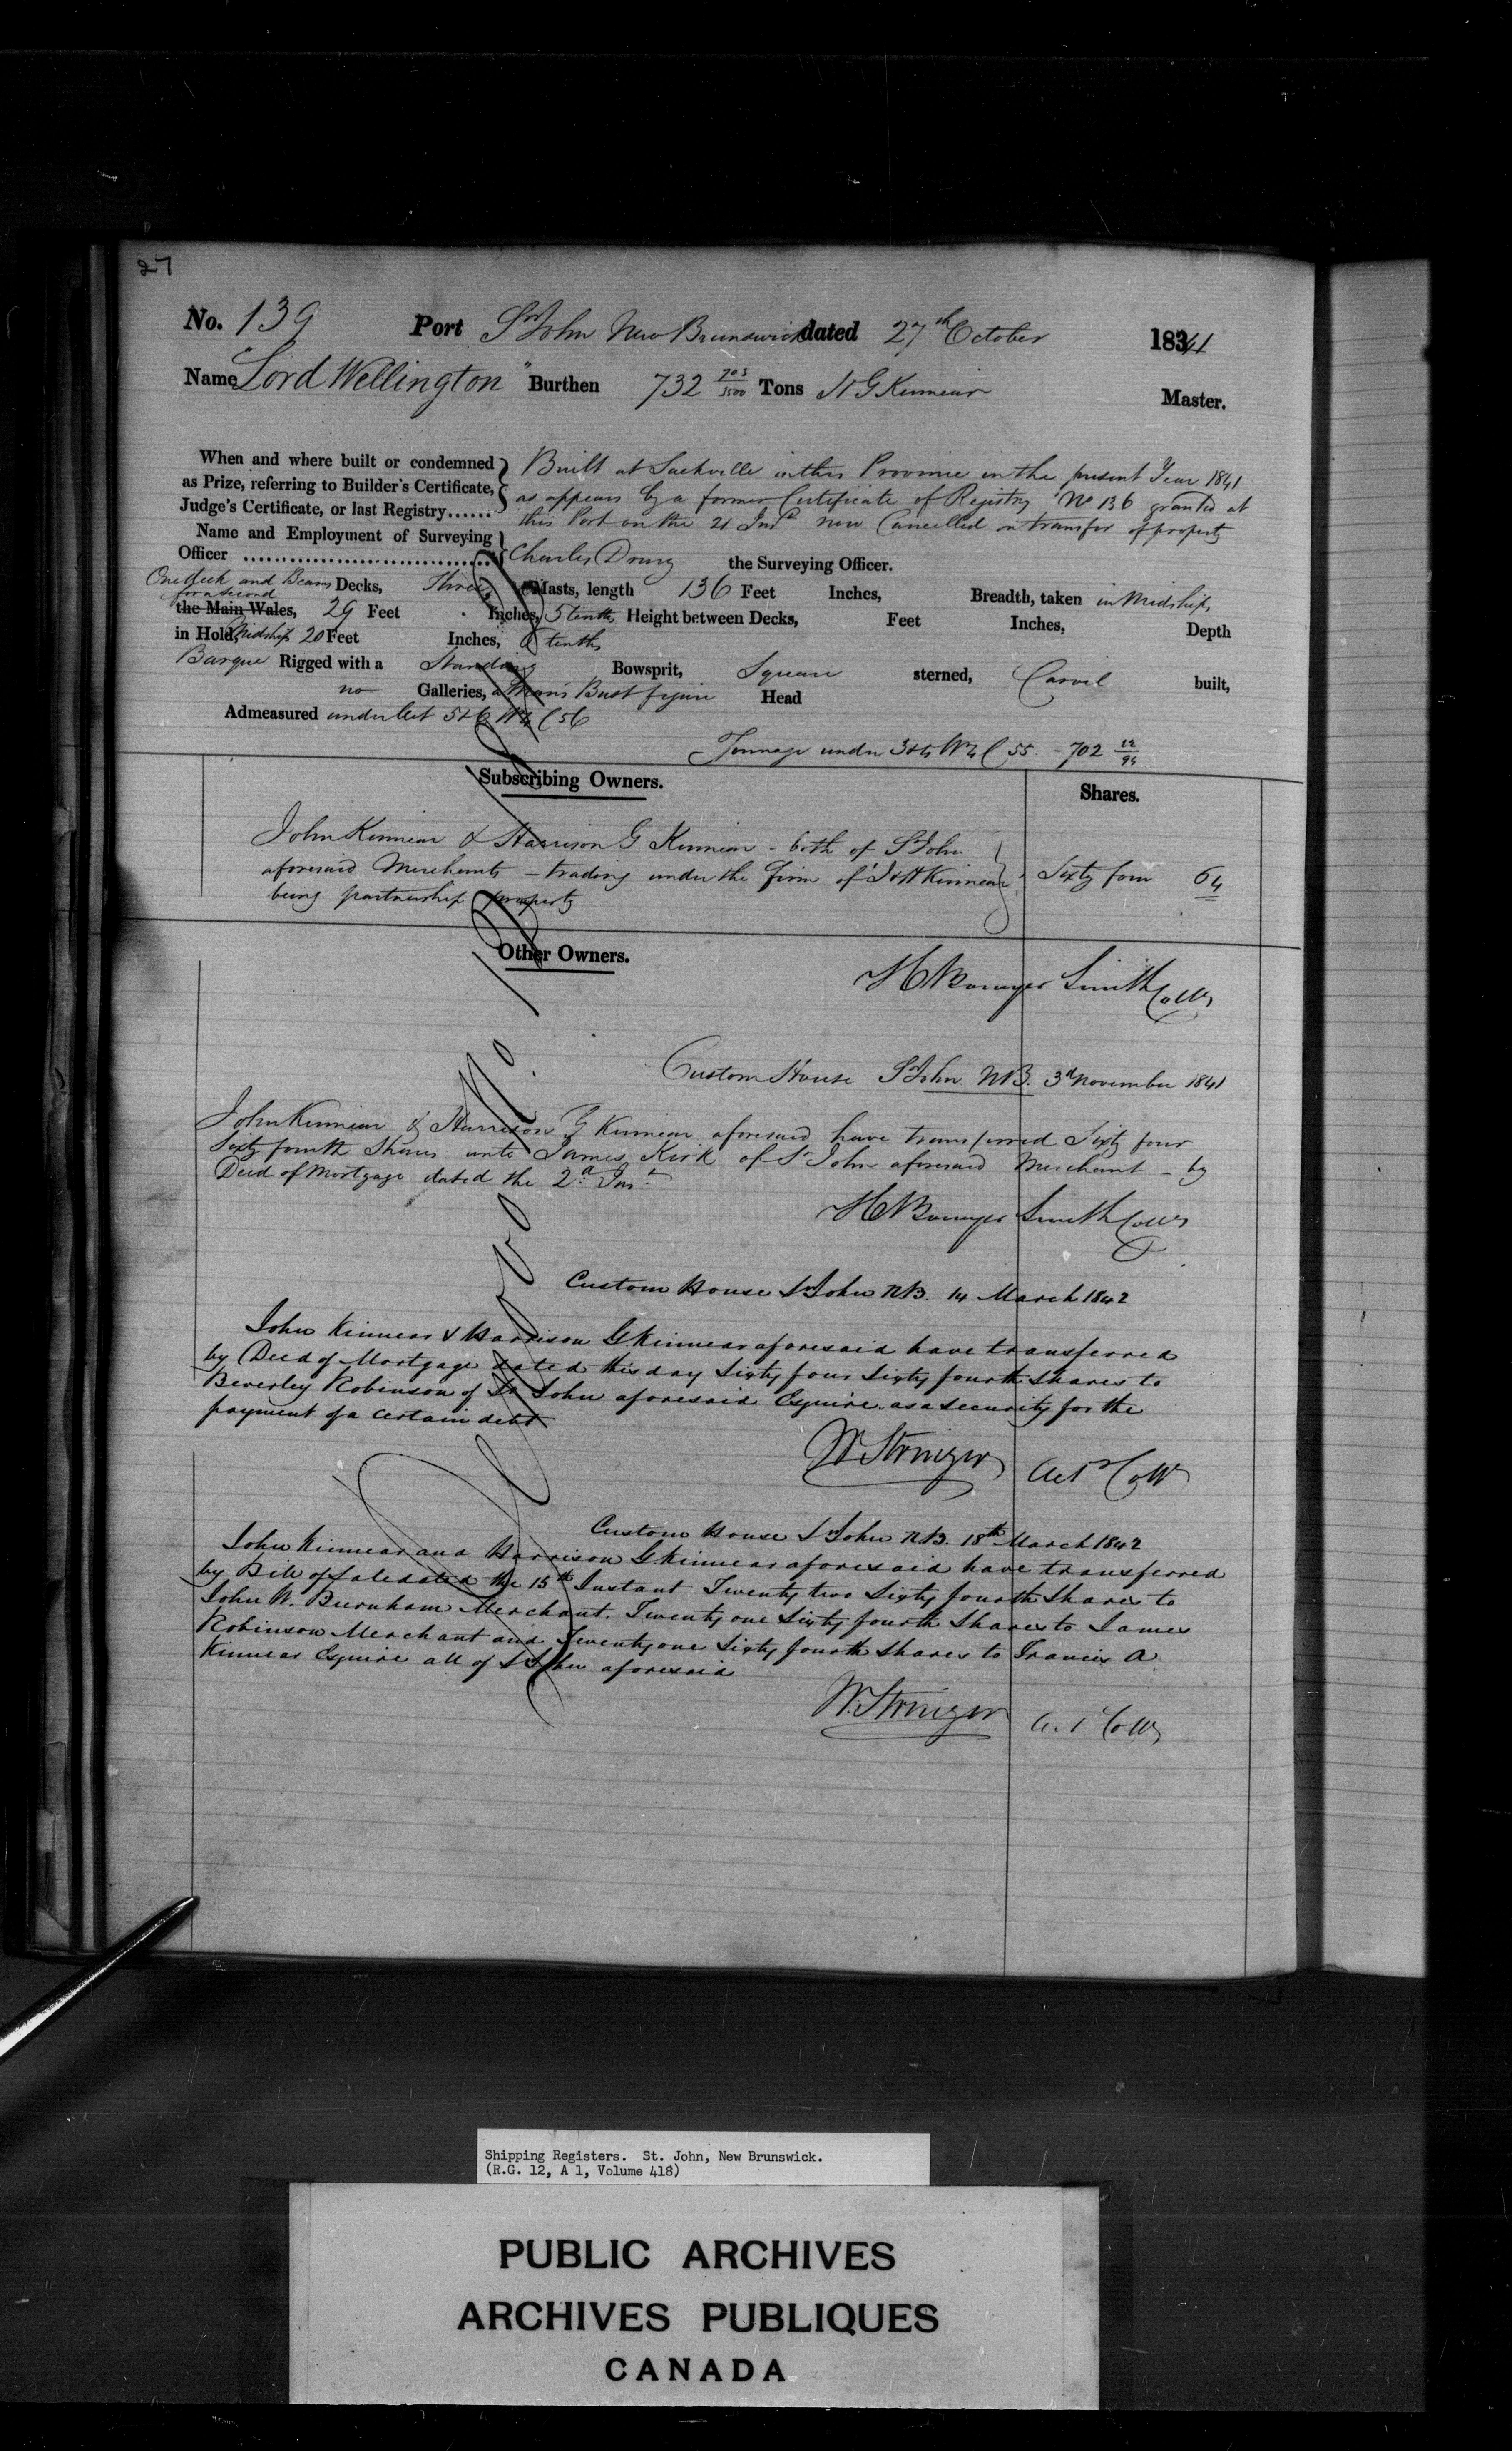 27
No. 139 Port St John New Brunswick dated 27th October 1841
Name "Lord Wellington" Burthen 732 703/3500 Tons H G Kinnear Master.
When and where built or condemned as Prize, referring to Builder's Certificate, Judge's Certificate, or last Registry......
Built at Sackville in this Province in the present Year 1841
as appears by a former Certificate of Registry No 136 granted at
this Port on the 21 Inst now Cancelled on transfer of property
Name and Employment of Surveying Officer
Charles Drury the Surveying Officer.
One deck and Beams for a second Decks, Three Masts, length 136 Feet Inches, Breadth, taken in Midships
the Main Wales, 29 Feet Inches, 5 tenths Height between Decks, Feet Inches, Depth
in Hold, Midships 20 Feet Inches, tenths
Barque Rigged with a Standing Bowsprit, Square sterned, Carvel built,
no Galleries, a Man's Bust figure Head
Admeasured under Act 5 & 6 W 4 C 56
Tonnage under 3 & 4 W 4 C 55 - 702 22/94
Subscribing Owners.
Shares.
John Kinnear & Harrison G Kinnear - both of St John
aforesaid Merchants - trading under the Firm of J & H Kinnear
being partnership property
Sixty four 64
Other Owners.
H Bowyer Smith Collr
Custom House St John N.B. 3d November 1841
John Kinnear & Harrison G Kinnear aforesaid have transferred Sixty four
Sixty fourth Shares unto James Kirk of St John aforesaid Merchant - by
Deed of Mortgage dated the 2d Inst
H Bowyer Smith Collr
Custom House St John N.B. 14 March 1842
John Kinnear & Harrison G Kinnear aforesaid have transferred
by Deed of Mortgage dated this day Sixty four Sixty fourth Shares to
Beverley Robinson of St John aforesaid Esquire as a security for the
payment of a certain debt
W Stringer Actg Collr
Custom House St John N.B. 18th March 1842
John Kinnear and Harrison G Kinnear aforesaid have transferred
by Bill of Sale dated the 15th Instant Twenty two Sixty fourth Shares to
John W. Burnham Merchant. Twenty one Sixty fourth Shares to James
Robinson Merchant and Twenty one Sixty fourth Shares to Francis A
Kinnear Esquire all of St John aforesaid
W. Stringer Act Collr
De Novo No.
Shipping Registers. St. John, New Brunswick.
(R.G. 12, A 1, Volume 418)
PUBLIC ARCHIVES
ARCHIVES PUBLIQUES
CANADA